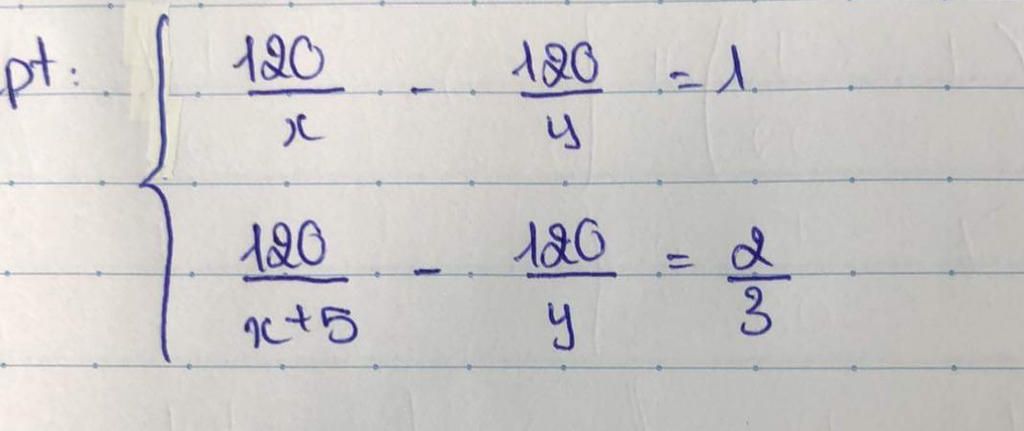 pt: { 120/x - 120/y = 1
120/x+5 - 120/y = 2/3